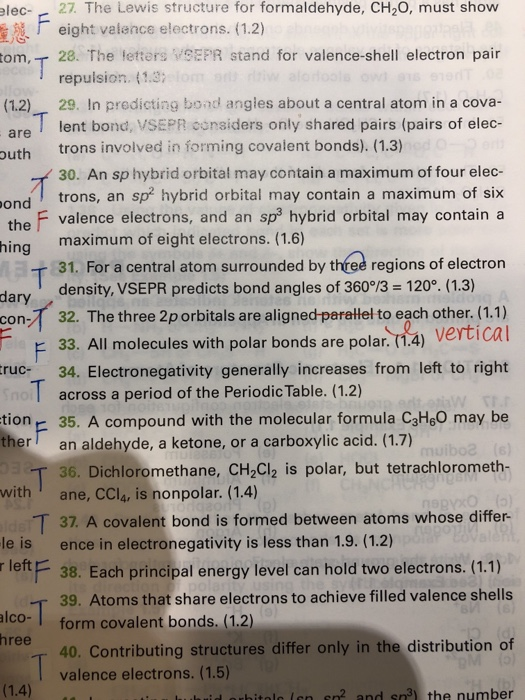 elec-
27. The Lewis structure for formaldehyde, CH₂O, must show
F
eight valence electrons. (1.2)
tom,
T
28. The letters VSEPR stand for valence-shell electron pair
repulsion. (1.3)
(1.2)
29. In predicting bond angles about a central atom in a cova-
are
T
lent bond, VSEPR considers only shared pairs (pairs of elec-
outh
trons involved in forming covalent bonds). (1.3)
T
30. An sp hybrid orbital may contain a maximum of four elec-
ond
trons, an sp² hybrid orbital may contain a maximum of six
the
F
valence electrons, and an sp³ hybrid orbital may contain a
hing
maximum of eight electrons. (1.6)
T
31. For a central atom surrounded by three regions of electron
dary
density, VSEPR predicts bond angles of 360°/3 = 120°. (1.3)
con-
T
32. The three 2p orbitals are aligned parallel to each other. (1.1)
F
F
33. All molecules with polar bonds are polar. (1.4)
vertical
truc-
34. Electronegativity generally increases from left to right
T
across a period of the Periodic Table. (1.2)
tion
35. A compound with the molecular formula C₃H₆O may be
ther
F
an aldehyde, a ketone, or a carboxylic acid. (1.7)
T
36. Dichloromethane, CH₂Cl₂ is polar, but tetrachlorometh-
with
ane, CCl₄, is nonpolar. (1.4)
T
37. A covalent bond is formed between atoms whose differ-
le is
ence in electronegativity is less than 1.9. (1.2)
r left
F
38. Each principal energy level can hold two electrons. (1.1)
39. Atoms that share electrons to achieve filled valence shells
alco-
T
form covalent bonds. (1.2)
hree
40. Contributing structures differ only in the distribution of
T
valence electrons. (1.5)
(1.4)
and sp³) the number